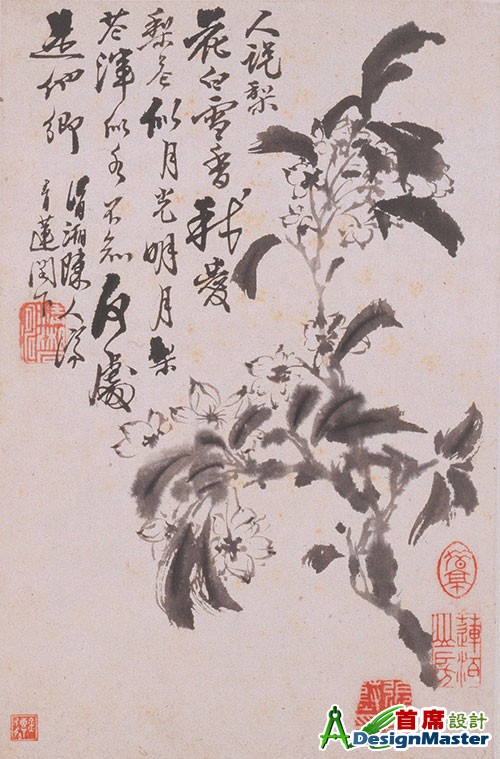 人說梨
花白雪香我愛
梨花似月光明月梨
花渾似水不知何處
是他鄉
清湘陳人濟
青蓮閣下
首席設計
ADesignMaster